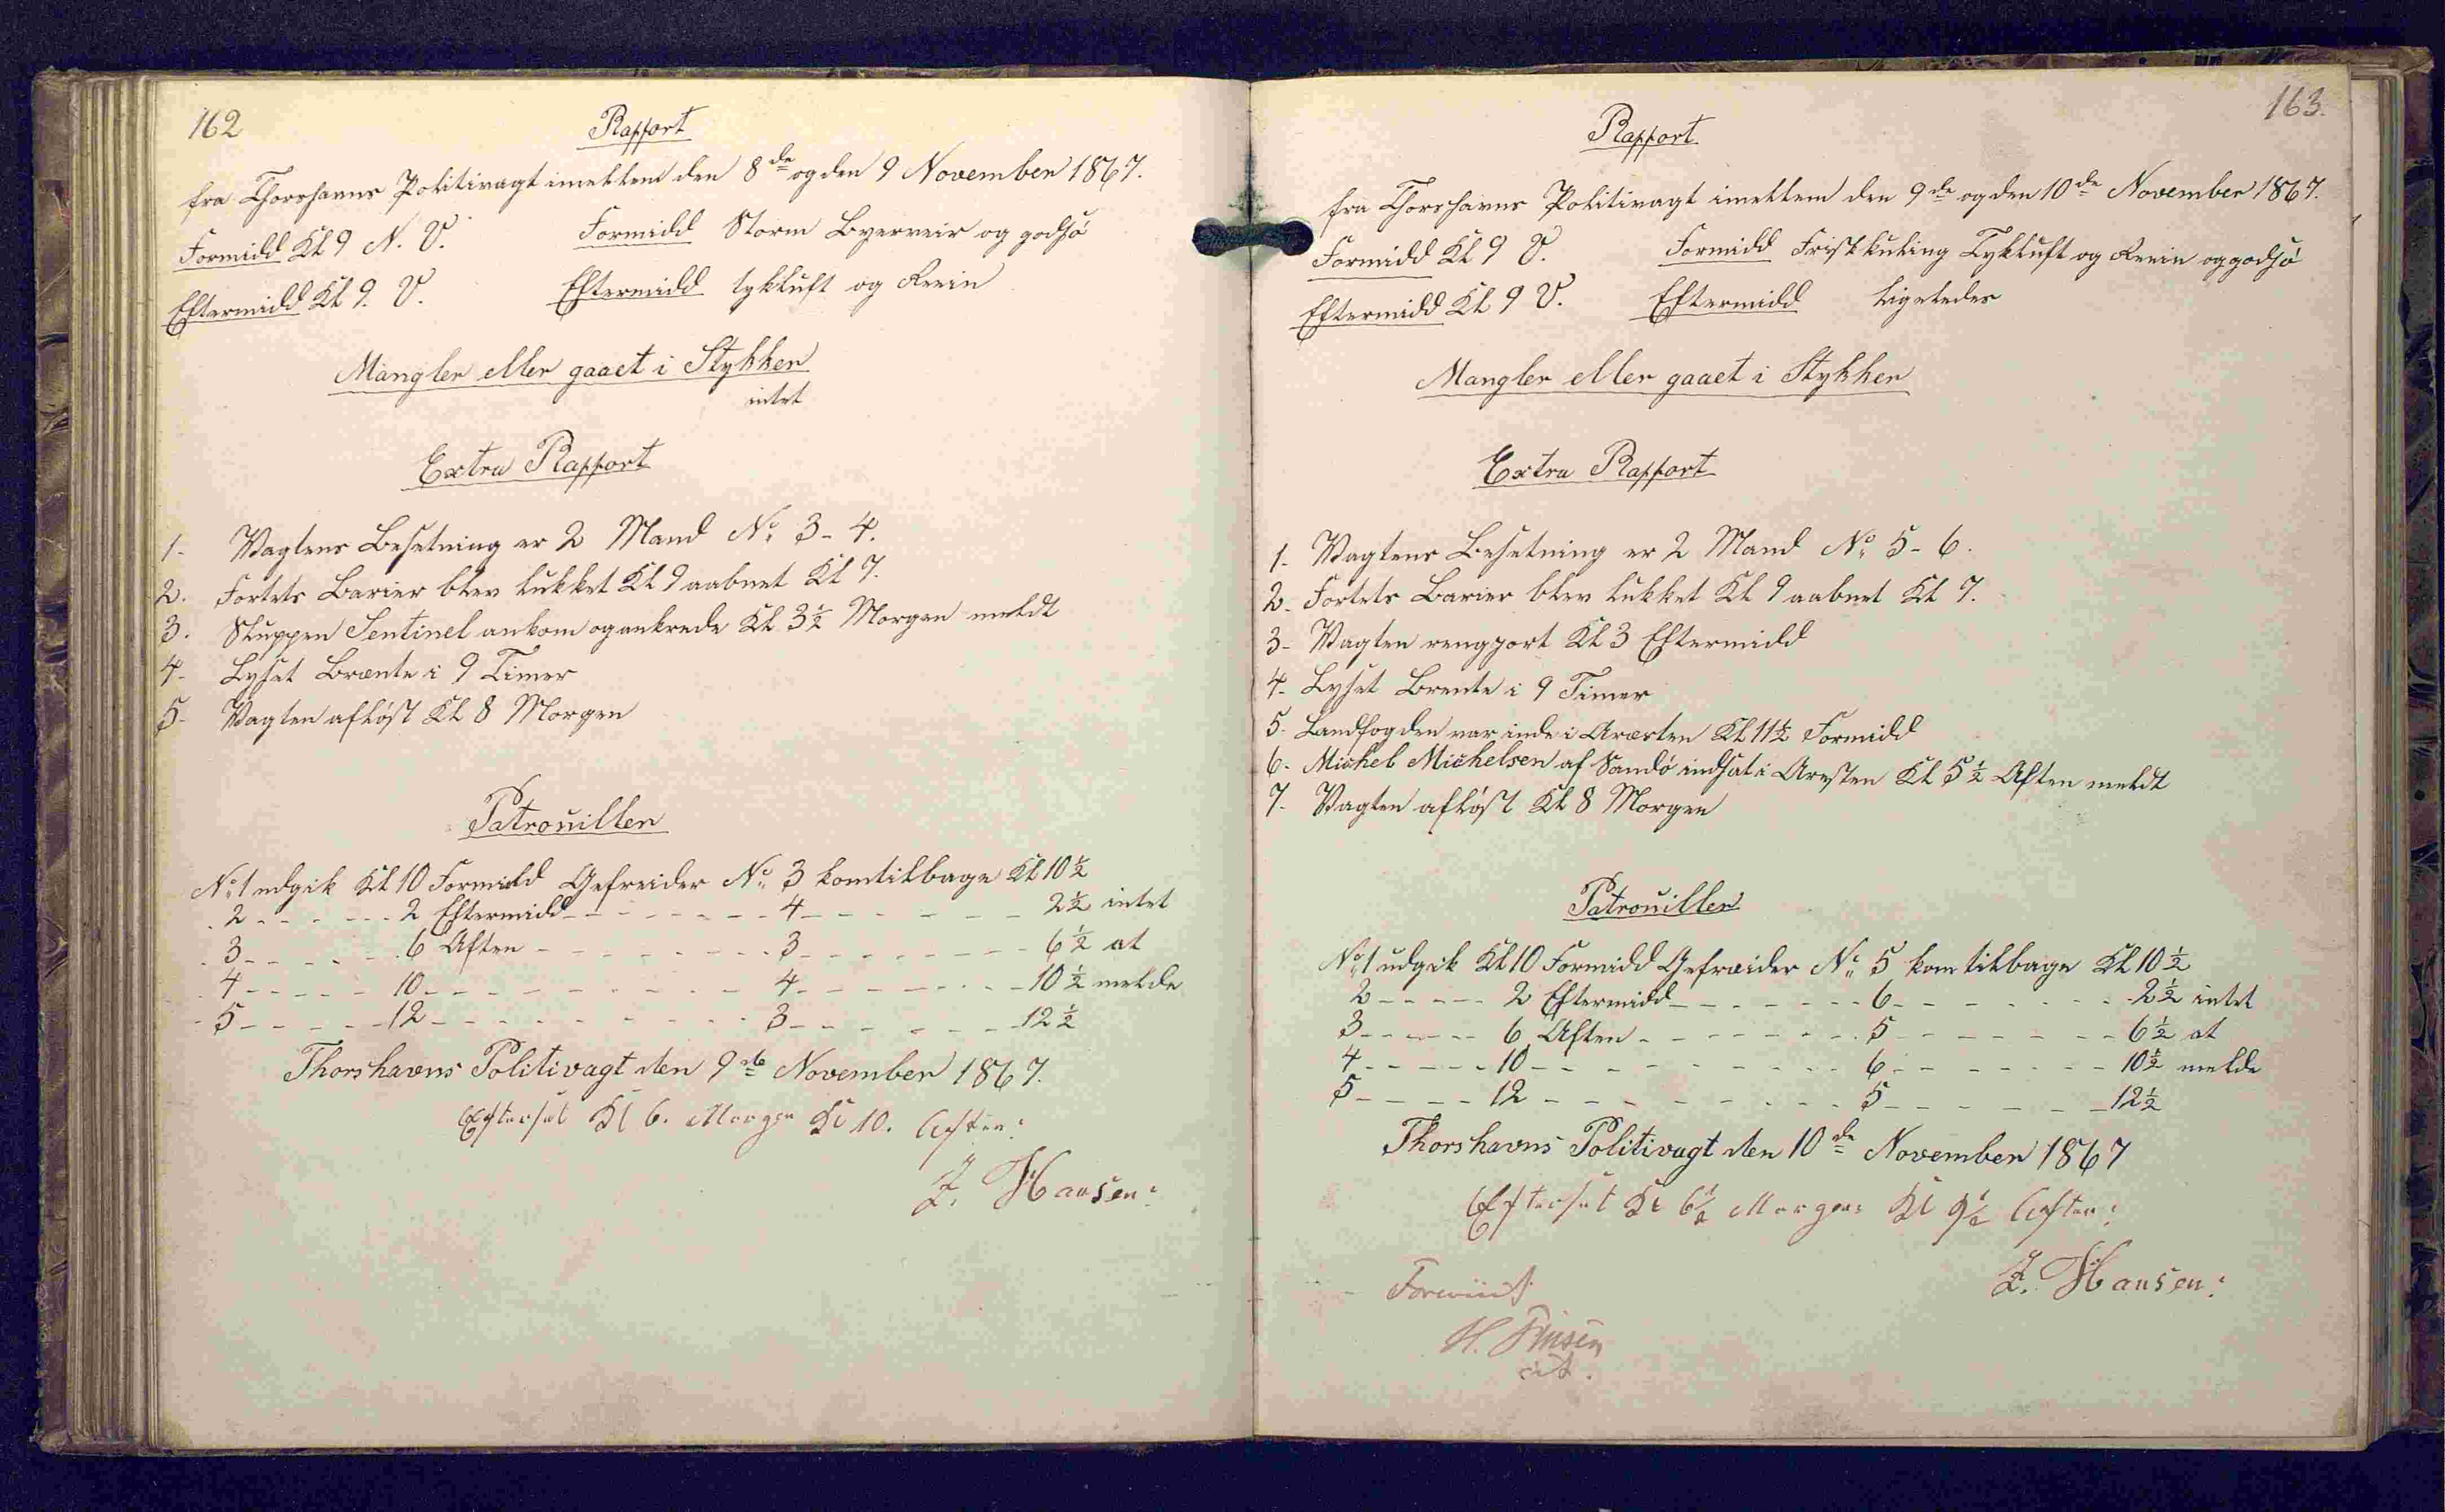 162
Rapport
fra Thorshavns Politivagt imellem den 8de og den 9 November 1867.
Formidd Kl 9 N. V. Formidd Storm Byerveir og godsö
Eftermidd Kl 9. V. Eftermidd tykluft og Rein
Mangler eller gaaet i Stykker
intet
Extra Rapport
1- Vagtens Besetning er 2 Mand No 3-4.
2. Fortets Barier blev lukket Kl 9 aabnet Kl 7.
3. Sluppen Sentinel ankom og ankrede Kl 3½ Morgen meldt
4- Lyset Brænte i 9 Timer
5- Vagten aflöst Kl 8 Morgen
Patrouillen
No 1 udgik Kl 10 Formidd Gefreider No 3 kom tilbage Kl 10½
2 - - - - - 2 Eftermidd - - - - - - - 4 - - - - - - 2½ intet
3 - - - - - 6 Aften - - - - - - - 3 - - - - - - 6½ at
4 - - - - - 10 - - - - - - - - - 4 - - - - - - 10½ melde
5 - - - - - 12 - - - - - - - - - 3 - - - - - - 12½
Thorshavns Politivagt den 9de November 1867.
Efterset Kl 6. Morgen Kl 10. Aften:
Z. Hansen:
163.
Rapport
fra Thorshavns Politivagt imellem den 9de og den 10de November 1867.
Formidd Kl 9 V. Formidd Friskkuling Tykluft og Reein og godsö
Eftermidd Kl 9 V. Eftermidd ligeledes
Mangler eller gaaet i Stykker
Extra Rapport
1- Vagtens Besetning er 2 Mand No 5-6.
2- Fortets Barier blev lukket Kl 9 aabnet Kl 7.
3- Vagten rengjort Kl 3 Eftermidd
4- Lyset Brente i 9 Timer
5- Landfogden var inde i Aræsten Kl 11½ Formidd
6- Michel Michelsen af Sandö indsat i Aresten Kl 5½ Aften meldt
7- Vagten aflöst Kl 8 Morgen
Patrouillen
No 1 udgik Kl 10 Formidd Gefræider No 5 kom tilbage Kl 10½
2 - - - - - 2 Eftermidd - - - - - - - 6 - - - - - - 2½ intet
3 - - - - - 6 Aften - - - - - - - 5 - - - - - - 6½ at
4 - - - - - 10 - - - - - - - - - 6 - - - - - - 10½ melde
5 - - - - - 12 - - - - - - - - - 5 - - - - - - 12½
Thorshavns Politivagt den 10de November 1867
Efterset Kl 6½ Morgen: Kl 9½ Aften:
Z. Hansen:
Foreviist
H. Finsen
cst.